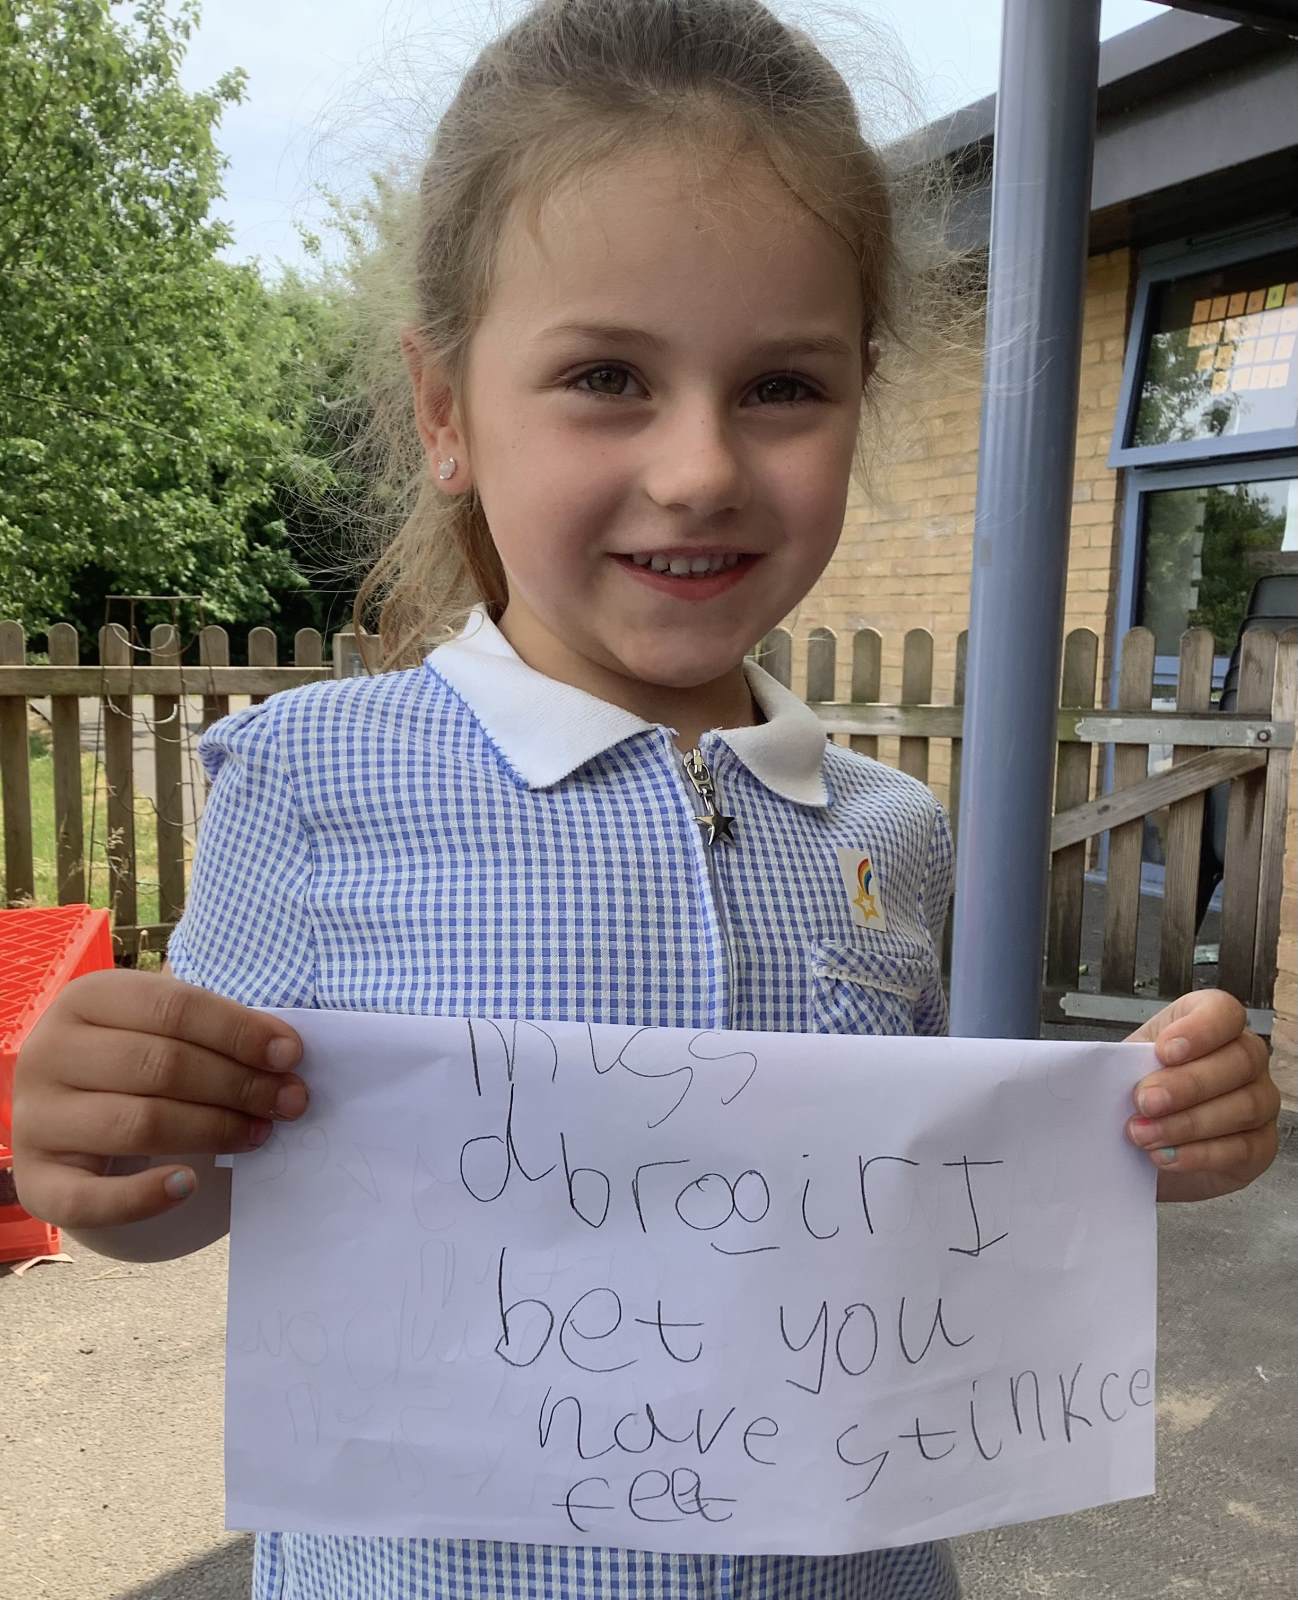 miss
dbrooir I
bet you
have stinkce
feet